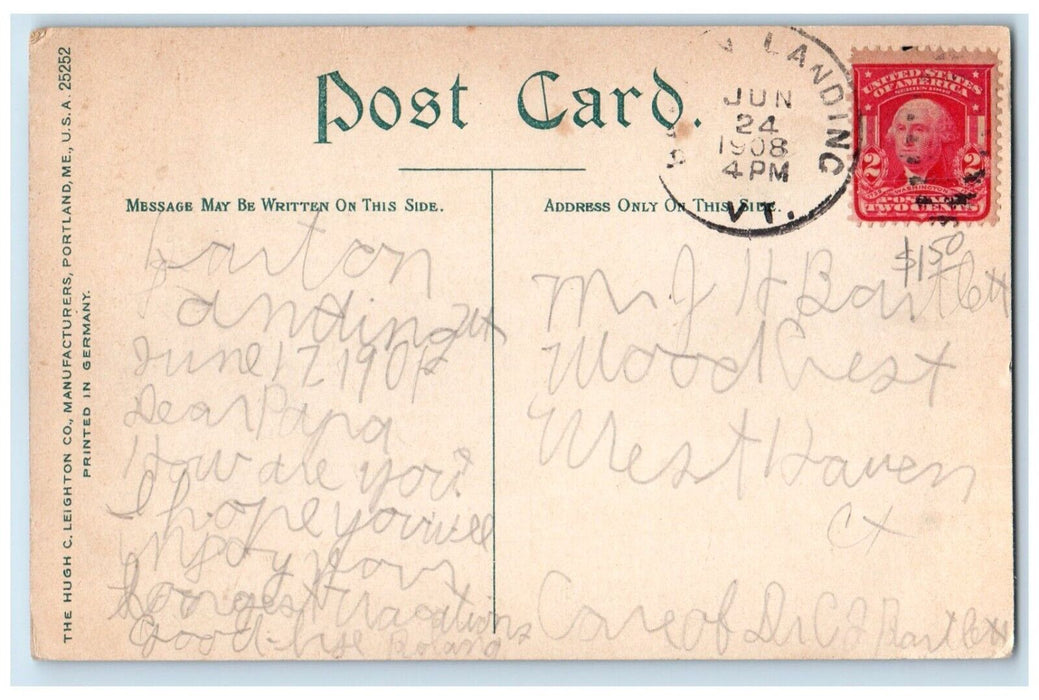 Post Card.
THE HUGH C. LEIGHTON CO., MANUFACTURERS, PORTLAND, ME., U.S.A. 25252
PRINTED IN GERMANY.
MESSAGE MAY BE WRITTEN ON THIS SIDE.
Barton
Landing
June 17 190
Dear Papa
How are you?
I hope you will
injoy your
Longest Vacations
Good-bye Roland
ADDRESS ONLY ON THIS SIDE.
LANDING
JUN
24
1908
4 PM
VT.
UNITED STATES
OF AMERICA
SERIES 1902
2 2
WASHINGTON
TWO CENTS
$1.50
Mr. J H Bartlett
Wood Crest
West Haven
Ct
Care of Dr C J Bartlett